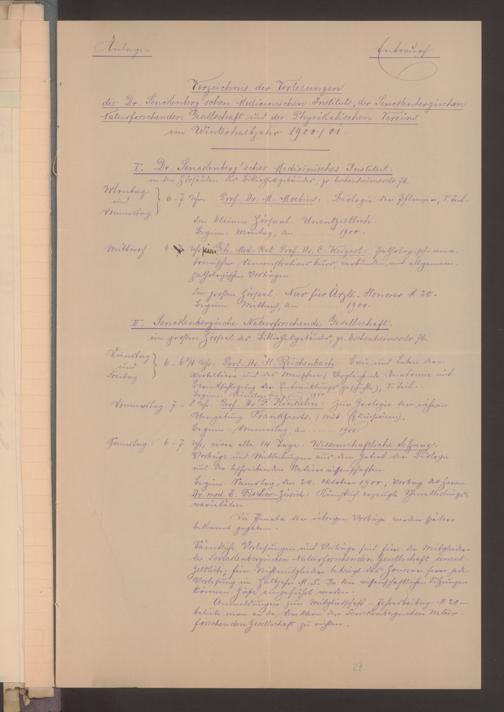 Anlage. Entwurf
Verzeichnis der Vorlesungen
des Dr. Senckenberg'schen Medicinischen Instituts, der Senckenbergischen
Naturforschenden Gesellschaft und des Physikalischen Vereins
im Winterhalbjahr 1900/01.
I. Dr. Senckenberg'sches Medicinisches Institut.
in den Hörsälen des Bibliothekgebäudes, gr. Eschenheimerstr. 76.
Montag und Donnerstag 6-7 Uhr, Prof. Dr. M. Moebius: Biologie der Pflanzen, I. Teil.
Im kleinen Hörsaal. Unentgeltlich.
Beginn: Montag, den 1900.
Mittwoch 6 Uhr, Geh. Med. Rat Prof. Dr. C. Weigert: Pathologisch-ana-
tomischer Demonstrationskurs, verbunden mit allgemein-
pathologischen Vorträgen.
Im großen Hörsaal. Nur für Ärzte. Honorar M. 20.-
Beginn: Mittwoch, den 1900.
II. Senckenbergische Naturforschende Gesellschaft.
im großen Hörsaal des Bibliothekgebäudes, gr. Eschenheimerstr. 76.
Dienstag und Freitag 6-6¾ Uhr, Prof. Dr. H. Reichenbach: Bau und Leben der
Wirbeltiere und des Menschen, (Vergleichende Anatomie mit
Berücksichtigung der Entwicklungsgeschichte), I. Teil.
Beginn: Dienstag, den 1900
Donnerstag 7- Uhr, Prof. Dr. F. Kinkelin: Zur Geologie der nahen
Umgebung Frankfurts, (mit Exkursionen).
Beginn: Donnerstag, den 1900.
Samstag 6-7 Uhr, etwa alle 14 Tage: Wissenschaftliche Sitzung.
Vorträge und Mitteilungen aus dem Gebiet der Biologie
und der beschreibenden Naturwissenschaften.
Beginn: Samstag, den 20. Oktober 1900, Vortrag des Herrn
Dr. med. E. Fischer-Zürich: Künstlich erzeugte Schmetterlings-
varietäten.
Die Themata der übrigen Vorträge werden später
bekannt gegeben.
Sämtliche Vorlesungen und Vorträge sind für die Mitglieder
der Senckenbergischen Naturforschenden Gesellschaft unent-
geltlich; für Nichtmitglieder beträgt das Honorar für jede
Vorlesung im Halbjahr M. 5. Zu den wissenschaftlichen Sitzungen
können Gäste eingeführt werden.
Anmeldungen zur Mitgliedschaft, Jahresbeitrag M 20-
beliebe man an die Direktion der Senckenbergischen Natur-
forschenden Gesellschaft zu richten.